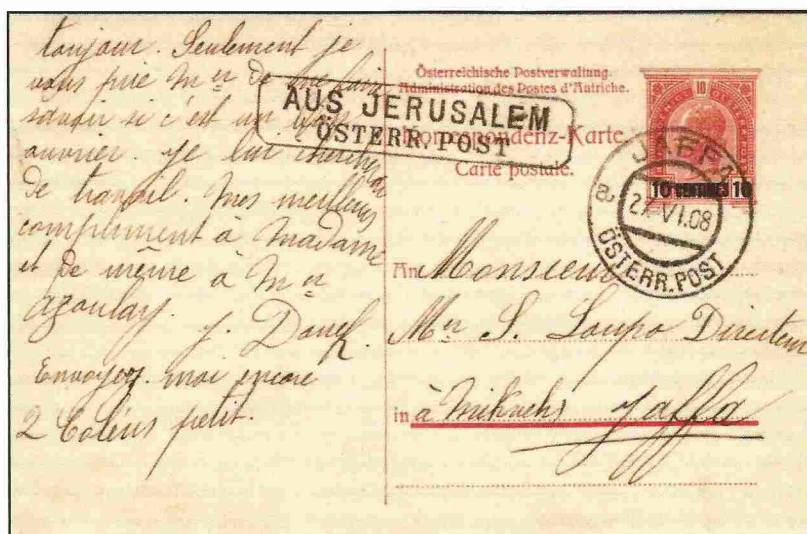 toujour. Seulement je
vous prie Mr de me faire
savoir si c'est un bon
ouvrier. je lui
de travail. Mes meilleurs
compliment à Madame
et de même à Mr
Azoulay. J.
Envoyez moi encore
2 Coléus petit.
AUS JERUSALEM
ÖSTERR. POST
Österreichische Postverwaltung.
Administration des Postes d'Autriche.
Correspondenz-Karte.
Carte postale.
10
10 CENTIMES 10
JAFFA
27 VI.08
a
ÖSTERR. POST
An Monsieur
Mr S. Loupo Directeur
in à Mikweh Jaffa